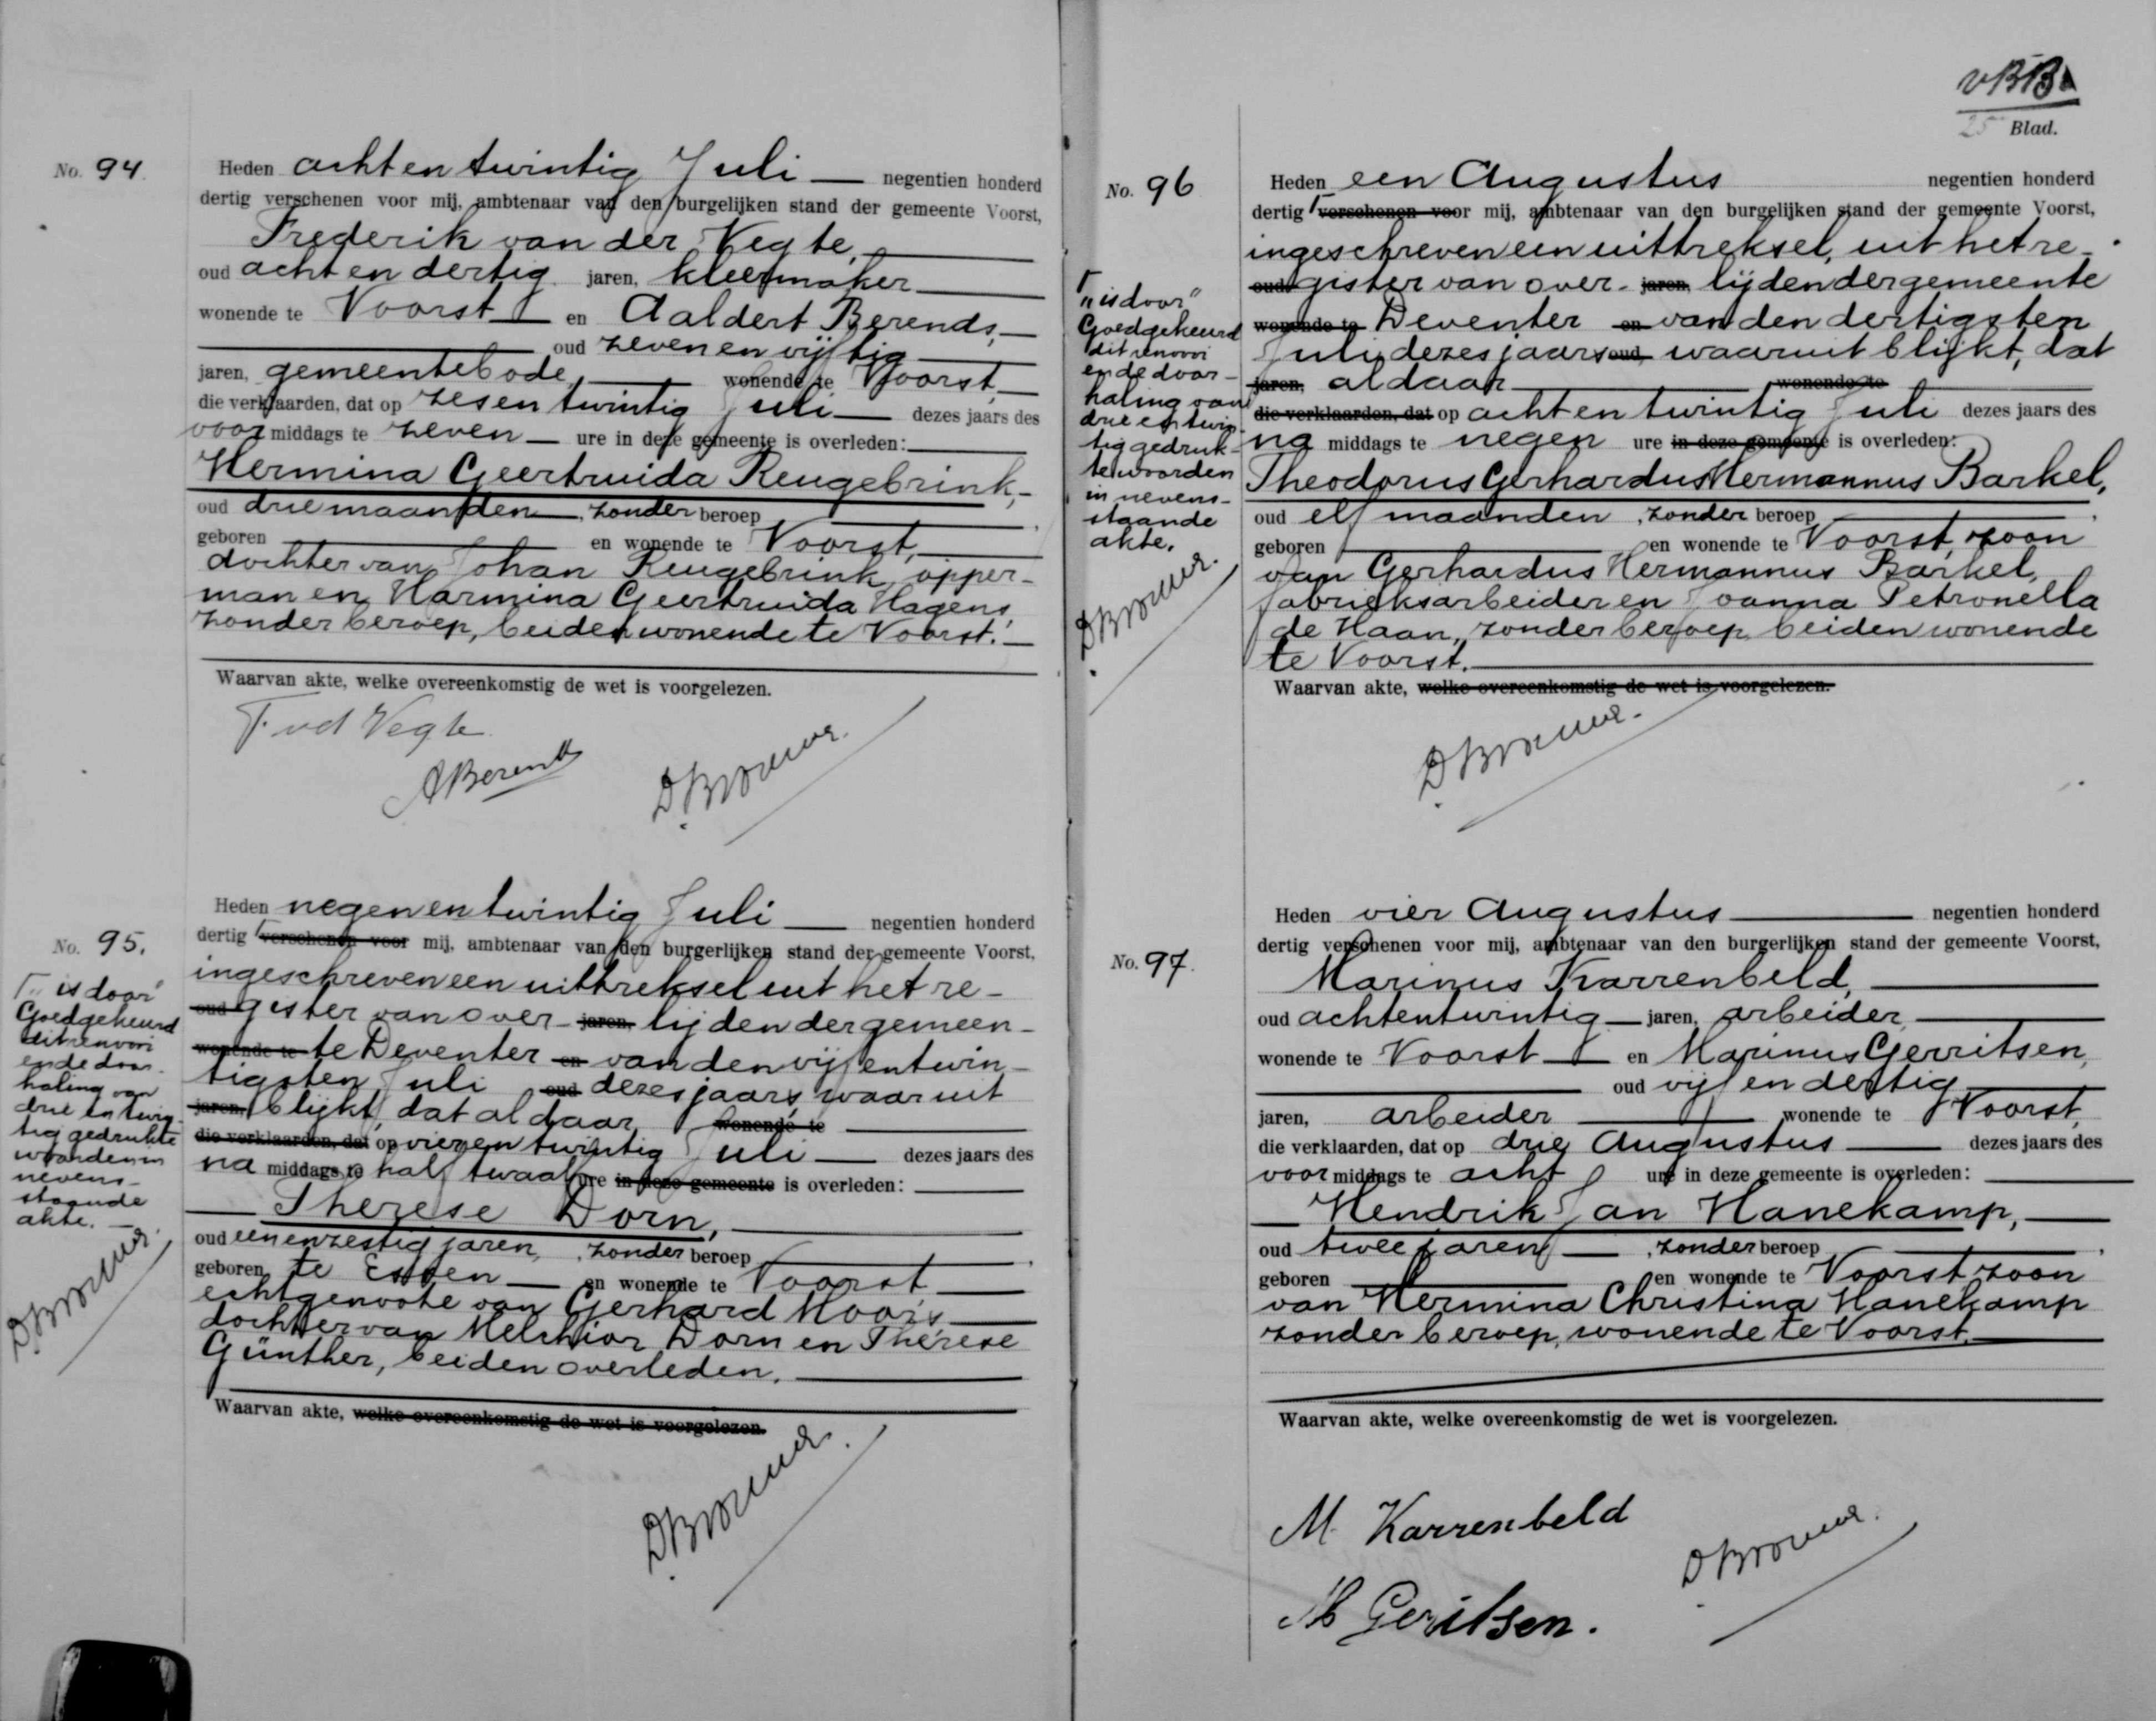 No. 94.
Heden acht en twintig Juli — negentien honderd
dertig verschenen voor mij, ambtenaar van den burgelijken stand der gemeente Voorst,
Frederik van der Vegte,
oud acht en dertig jaren, kleermaker
wonende te Voorst en Aaldert Berends,
oud zeven en vijftig
jaren, gemeentebode, wonende te Voorst,
die verklaarden, dat op zes en twintig Juli — dezes jaars des
voor middags te zeven — ure in deze gemeente is overleden:
Hermina Geertruida Reugebrink,
oud drie maanden, zonder beroep
geboren en wonende te Voorst,
dochter van Johan Reugebrink, opper-
man en Harmina Geertruida Hagens,
zonder beroep, beiden wonende te Voorst.
Waarvan akte, welke overeenkomstig de wet is voorgelezen.
F. vd Vegte
A Berends
D Brouwer.
No. 95.
"is door"
Goedgekeurd
dit renvooi
en de door-
haling van
drie en twin-
tig gedrukte
woorden in
nevens-
staande
akte.
D Brouwer.
Heden negen en twintig Juli — negentien honderd
dertig verschenen voor mij, ambtenaar van den burgerlijken stand der gemeente Voorst,
ingeschreven een uittreksel uit het re-
oud gister van over- jaren, lijden der gemeen-
wonende te te Deventer en van den vijf en twin-
tigsten Juli oud dezes jaars, waaruit
jaren, blijkt, dat aldaar, wonende te
die verklaarden, dat op vier en twintig Juli — dezes jaars des
na middags te half twaalf ure in deze gemeente is overleden:
Therese Dorn,
oud een en zestig jaren, zonder beroep
geboren te Essen en wonende te Voorst
echtgenoote van Gerhard Moors
dochter van Melchior Dorn en Therese
Günther, beiden overleden.
Waarvan akte, welke overeenkomstig de wet is voorgelezen.
D Brouwer.
vBB
25 Blad.
No. 96
"is door"
Goedgekeurd
dit renvooi
en de door-
haling van
drie en twin-
tig gedruk-
te woorden
in nevens-
staande
akte.
D Brouwer.
Heden een Augustus negentien honderd
dertig verschenen voor mij, ambtenaar van den burgelijken stand der gemeente Voorst,
ingeschreven een uittreksel, uit het re-
oud gister van over- jaren, lijden der gemeente
wonende te Deventer en van den dertigsten
Juli dezes jaars oud waaruit blijkt, dat
jaren, aldaar wonende te
die verklaarden, dat op acht en twintig Juli dezes jaars des
na middags te negen ure in deze gemeente is overleden:
Theodorus Gerhardus Hermannus Barkel,
oud elf maanden, zonder beroep
geboren en wonende te Voorst, zoon
van Gerhardus Hermannus Barkel,
fabrieksarbeider en Joanna Petronella
de Haan, zonder beroep beiden wonende
te Voorst.
Waarvan akte, welke overeenkomstig de wet is voorgelezen.
D Brouwer.
No. 97.
Heden vier Augustus negentien honderd
dertig verschenen voor mij, ambtenaar van den burgerlijken stand der gemeente Voorst,
Marinus Karrenbeld,
oud achtentwintig jaren, arbeider
wonende te Voorst en Marinus Gerritsen,
oud vijf en dertig
jaren, arbeider wonende te Voorst,
die verklaarden, dat op drie Augustus dezes jaars des
voor middags te acht ure in deze gemeente is overleden:
Hendrik Jan Hanekamp,
oud twee jaren, zonder beroep
geboren en wonende te Voorst zoon
van Hermina Christina Hanekamp
zonder beroep, wonende te Voorst.
Waarvan akte, welke overeenkomstig de wet is voorgelezen.
M. Karrenbeld
D Brouwer.
M Geritsen.